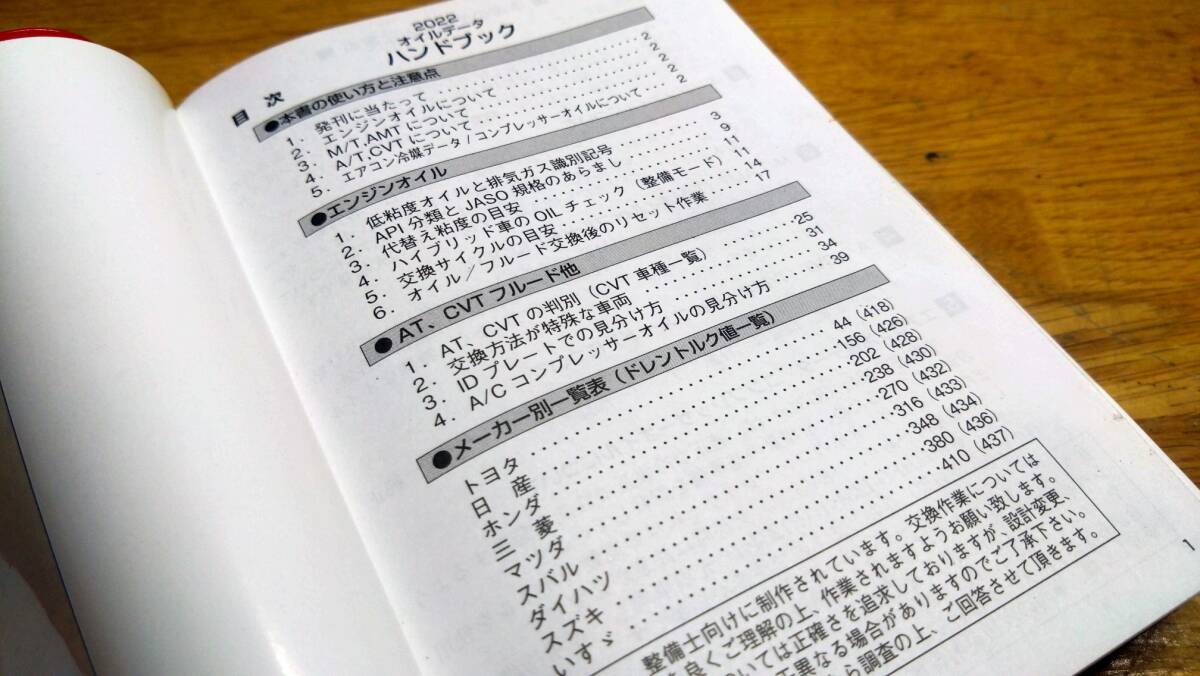 2022
オイルデータ
ハンドブック
目 次
●本書の使い方と注意点
1. 発刊に当たって ………… 2
2. エンジンオイルについて ………… 2
3. M/T,AMTについて ………… 2
4. A/T,CVTについて ………… 2
5. エアコン冷媒データ/コンプレッサーオイルについて ………… 2
●エンジンオイル
1. 低粘度オイルと排気ガス識別記号 ………… 3
2. API分類とJASO規格のあらまし ………… 9
3. 代替え粘度の目安 ………… 11
4. ハイブリッド車のOILチェック(整備モード) ………… 11
5. 交換サイクルの目安 ………… 14
6. オイル/フルード交換後のリセット作業 ………… 17
●AT、CVTフルード他
1. AT、CVTの判別(CVT車種一覧) ………… 25
2. 交換方法が特殊な車両 ………… 31
3. IDプレートでの見分け方 ………… 34
4. A/Cコンプレッサーオイルの見分け方 ………… 39
●メーカー別一覧表(ドレントルク値一覧)
トヨタ ………… 44 (418)
日 産 ………… 156 (426)
ホンダ ………… 202 (428)
三 菱 ………… 238 (430)
マツダ ………… 270 (432)
スバル ………… 316 (433)
ダイハツ ………… 348 (434)
スズキ ………… 380 (436)
いすゞ ………… 410 (437)
整備士向けに制作されています。交換作業については
良くご理解の上、作業されますようお願い致します。
いては正確さを追求しておりますが、設計変更、
異なる場合がありますのでご了承下さい。
ら調査の上、ご回答させて頂きます。
1